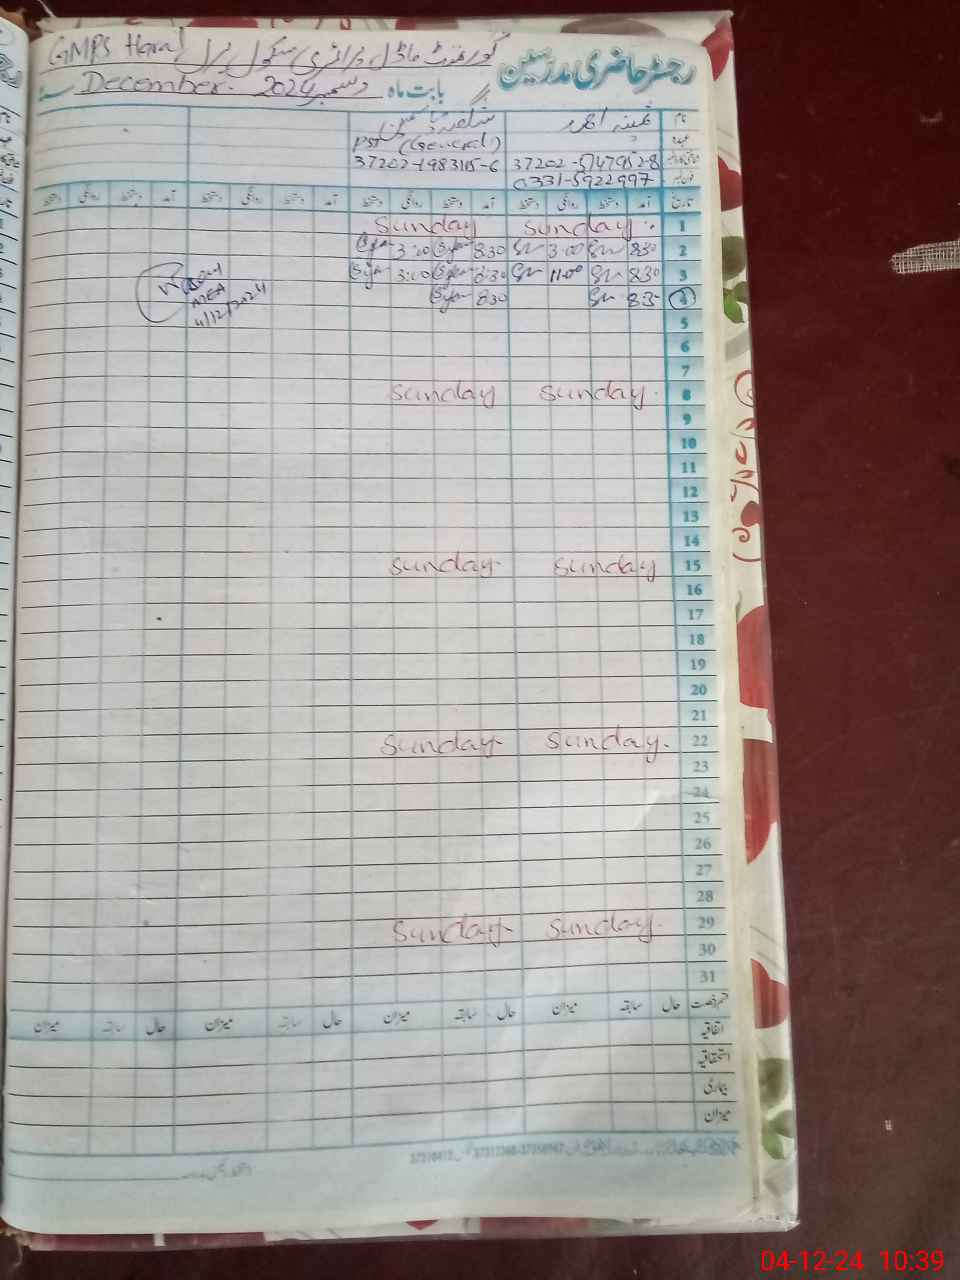 رجسٹر حاضری مدرسین
GMPS Haral گورنمنٹ ماڈل پرائمری سکول ہرل
بابت ماہ دسمبر December. 2024
نام
عہدہ PST (General)
37202-5747952-8 37202-1983115-6
0331-5922997
تاریخ آمد دستخط روانگی دستخط آمد دستخط روانگی دستخط آمد دستخط روانگی دستخط آمد دستخط روانگی دستخط
1 Sunday Sunday
2 830 3:00 830 3:00
3 830 11:00 8:30 3:00
4 83 830
MEA
4/12/2024
5
6
7
8 Sunday Sunday
9
10
11
12
13
14
15 Sunday Sunday
16
17
18
19
20
21
22 Sunday Sunday
23
24
25
26
27
28
29 Sunday Sunday
30
31
قسم رخصت حال سابقہ میزان حال سابقہ میزان حال سابقہ میزان حال سابقہ میزان
اتفاقیہ
استحقاقیہ
بیماری
میزان
04-12-24 10:39